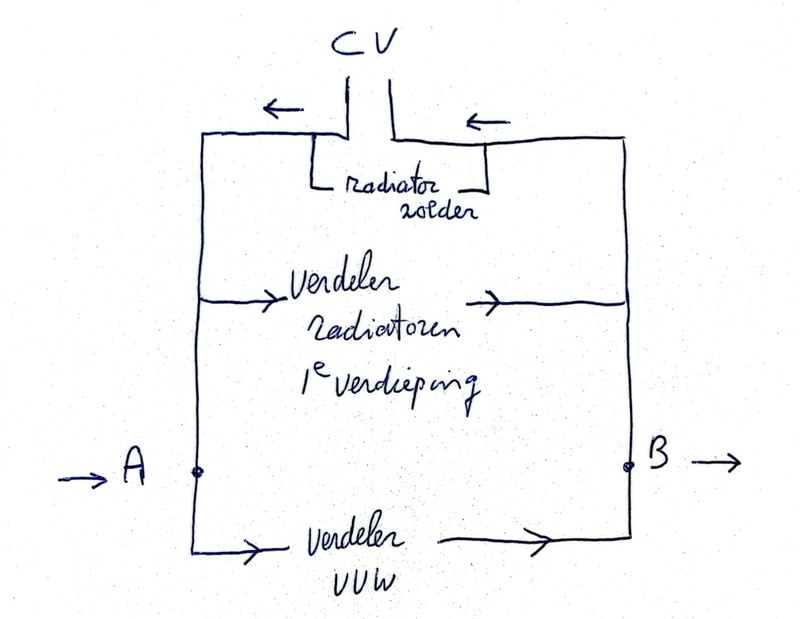 CV
radiator
zolder
Verdeler
Radiatoren
1e verdieping
A
B
Verdeler
VVW